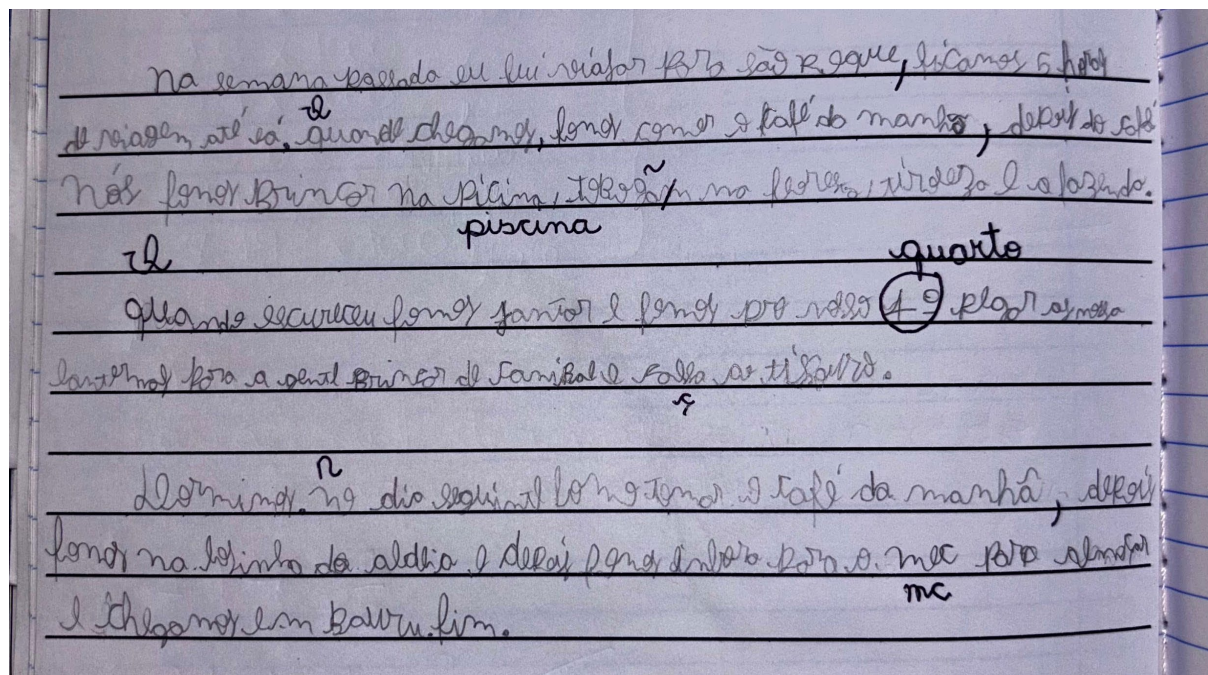 Na semana passada eu fui viajar para são Roque, ficamos 5 horas
Q
de viagem até lá. quando chegamos, fomos comer o café da manhã, depois do café
Nós fomos brincar na picina, tobogã na floresta, tirolesa e a fazenda.
piscina
Q quarto
quando escureceu fomos jantar e fomos pro nosso 4º pegar as nossa
lanternas para a gente brincar de canibal e cassa ao tisouro.
ç
N
Dormimos. no dia seguinte fomos tomar o café da manhã, depois
fomos na lojinha da aldeia e depois fomos embora para o mec para almoçar
mc
e chegamos em Bauru. fim.